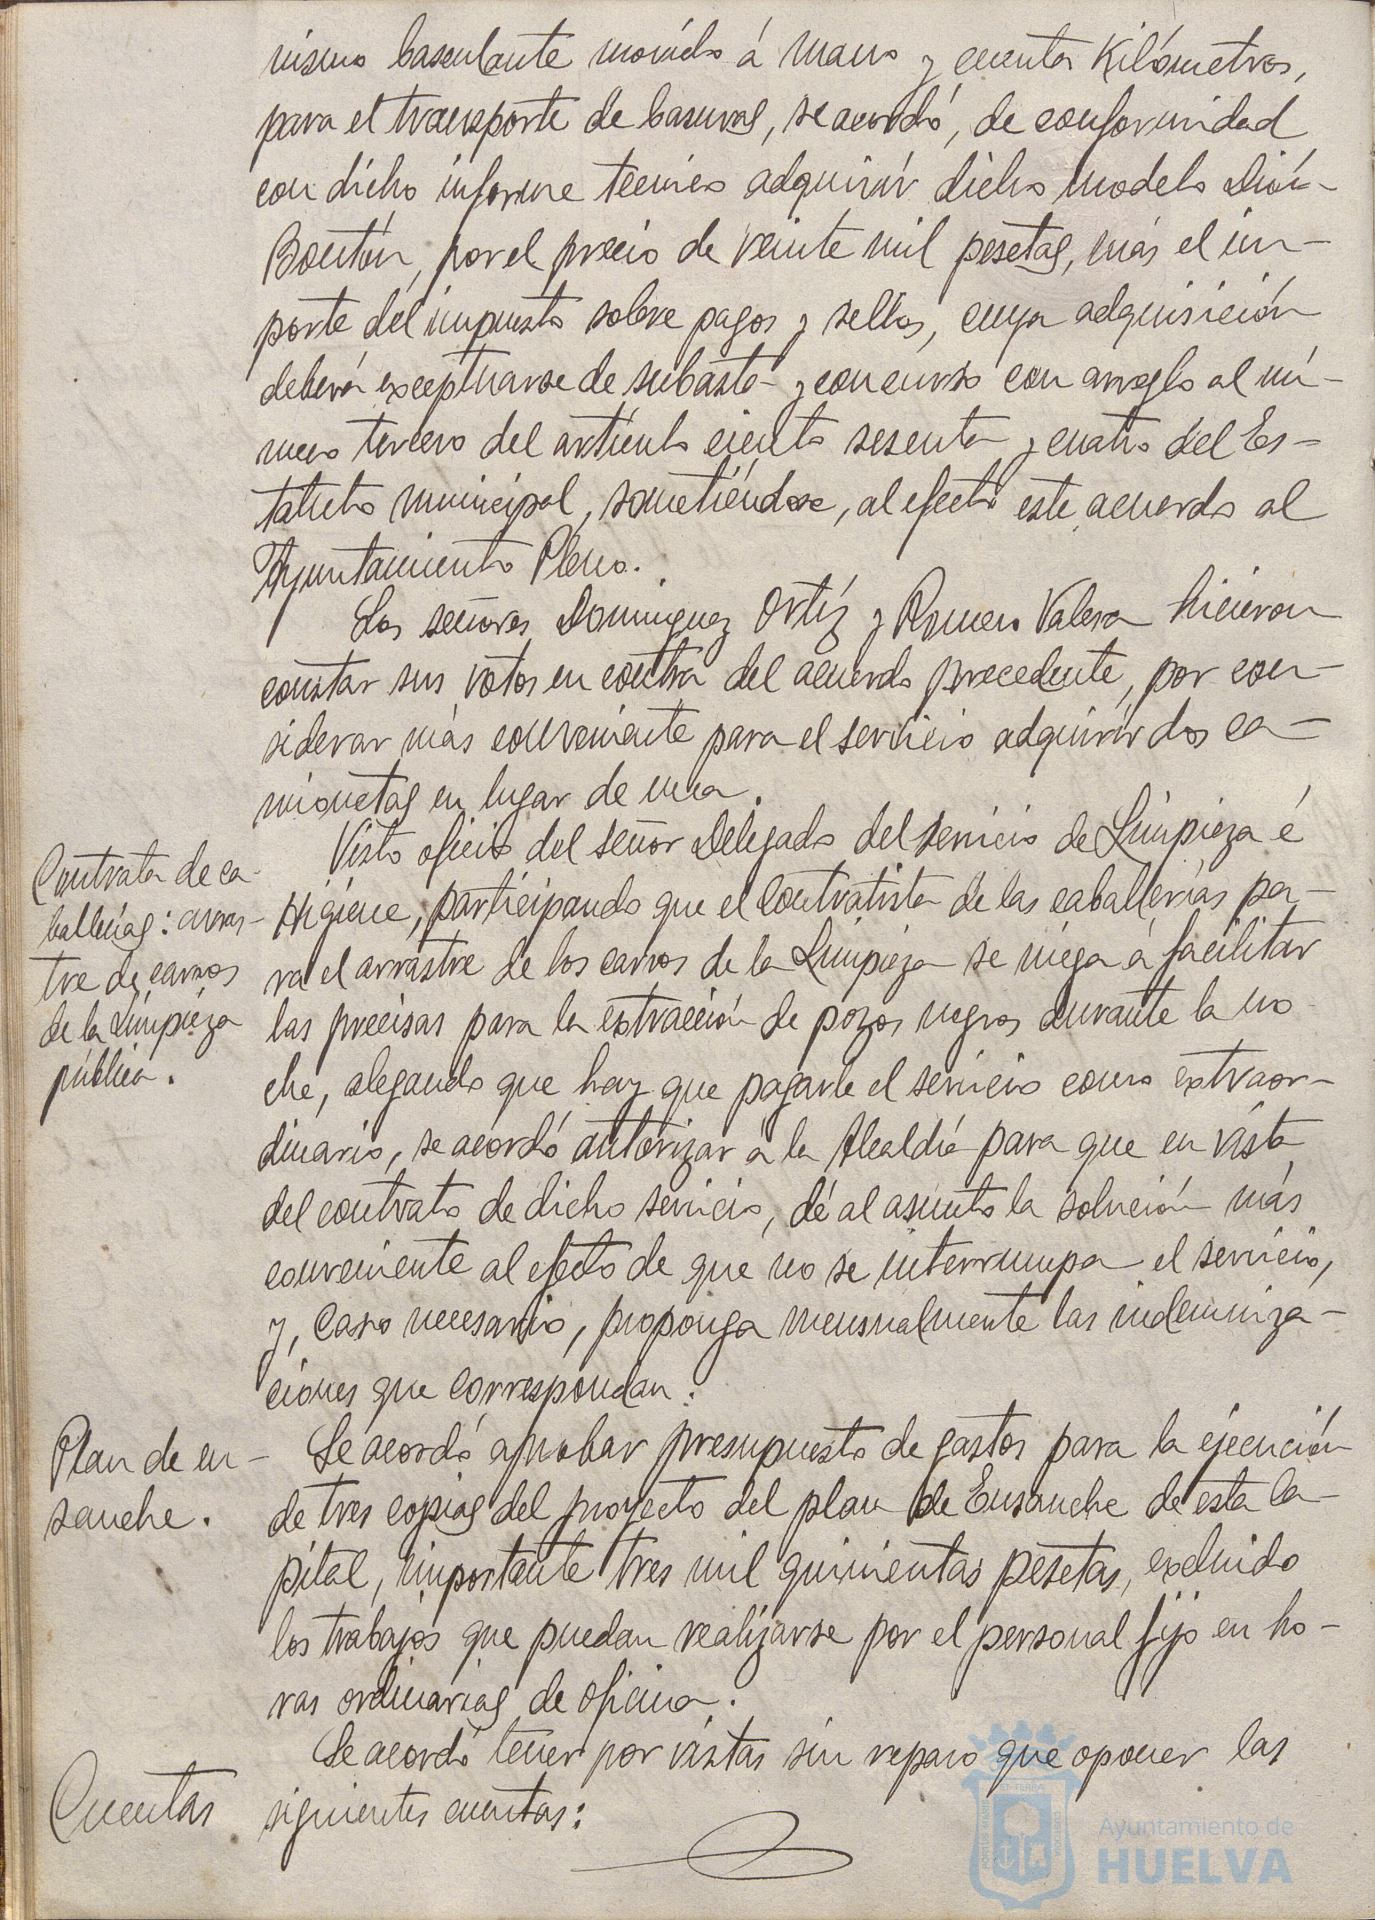 nismo basculante movido á mano y cuenta Kilómetros,
para el transporte de basuras, se acordó, de conformidad
con dicho informe técnico adquirir dicho modelo Dión-
Boutón, por el precio de veinte mil pesetas, más el im-
porte del impuesto sobre pagos y sellos, cuya adquisición
deberá exceptuarse de subasta y concurso con arreglo al nú-
mero tercero del artículo ciento sesenta y cuatro del Es-
tatuto municipal, sometiéndose, al efecto este acuerdo al
Ayuntamiento Pleno.
Los señores Dominguez Ortíz y Romero Valera hicieron
constar sus votos en contra del acuerdo precedente, por con-
siderar más conveniente para el servicio adquirir dos ca-
mionetas en lugar de una.
Contrata de ca-
ballerías: arras-
tre de carros
de la Limpieza
pública.
Visto oficio del señor Delegado del servicio de Limpieza é
Higiene, participando que el contratista de las caballerías pa-
ra el arrastre de los carros de la Limpieza se niega á facilitar
las precisas para la extracción de pozos negros durante la no-
che, alegando que hay que pagarle el servicio como extraor-
dinario, se acordó autorizar á la Alcaldía para que en vista
del contrato de dicho servicio, dé al asunto la solución más
conveniente al efecto de que no se interrumpa el servicio,
y, caso necesario, proponga mensualmente las indemniza-
ciones que correspondan.
Plan de en-
sanche.
Se acordó aprobar presupuesto de gastos para la ejecución
de tres copias del proyecto del plan de Ensanche de esta ca-
pital, importante tres mil quinientas pesetas, excluido
los trabajos que puedan realizarse por el personal fijo en ho-
ras ordinarias de oficina.
Cuentas
Se acordó tener por vistas sin reparo que oponer las
siguientes cuentas:
Ayuntamiento de
HUELVA